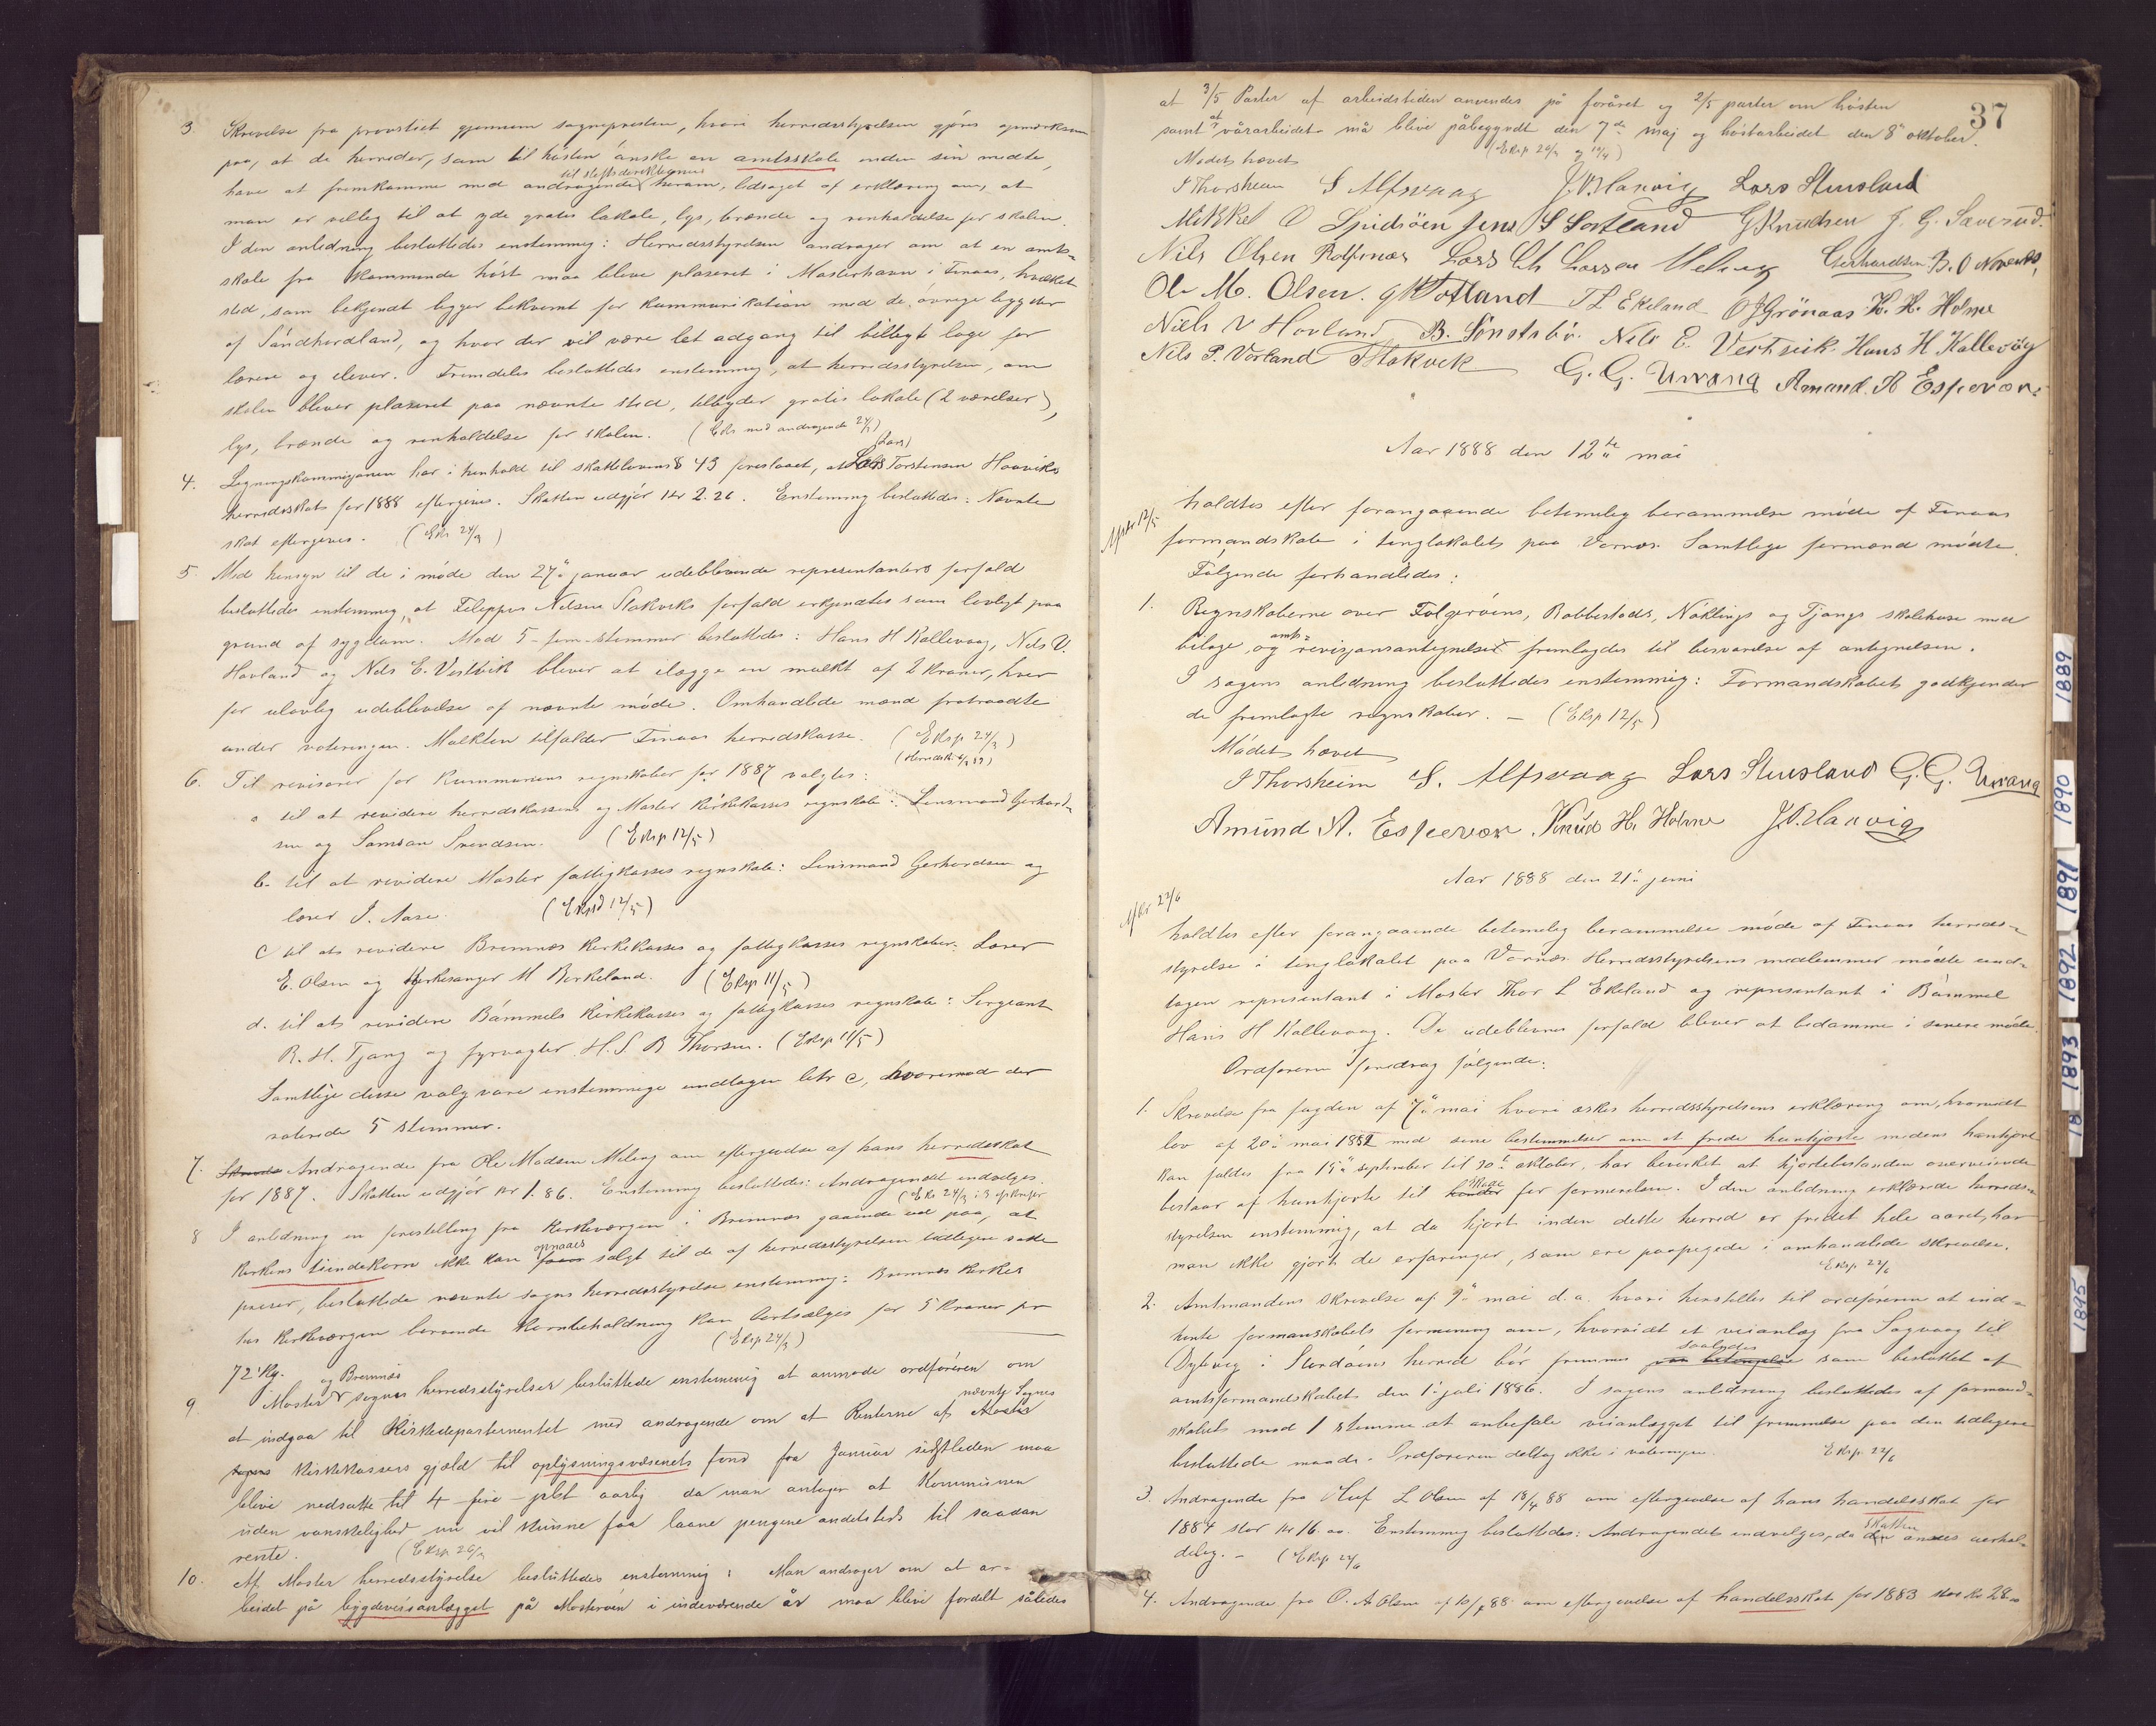 3. Skrivelse fra provstiet gjennem sognepresten, hvori herredsstyrelsen gjöres opmerksom
paa, at de herreder, som til hösten önske en amtsskole inden sin midte,
have at fremkomme med andragende til stiftsdirektionen herom, ledsaget af erklæring om, at
man er villig til at yde gratis lokale, lys, brænde og renholdelse for skolen.
I den anledning besluttedes enstemmig: Herredsstyrelsen andrager om at en amts-
skole fra kommende höst maa blive plaseret i Mosterhavn i Finaas, hvilket
sted, som bekjendt ligger bekvemt for kommunikation med de övrige bygder
af Söndhordland, og hvor der vil være let adgang til billigt loge for
lærere og elever. Fremdeles besluttedes enstemmig, at herredsstyrelsen, om
skolen bliver plaseret paa nævnte sted, tilbyder gratis lokale (2 værelser),
lys, brænde og renholdelse for skolen. (Eks med andragende 24/3)
4. Ligningskommisjonen har i henhold til skattelovens § 43 foreslaaet, at Lars (Lars) Torstensen Haaviks
herredsskat for 1888 eftergives. Skatten udgjör Kr 2.26. Enstemmig besluttedes: Nævnte
skat eftergives. (Eks 24/3)
5. Med hensyn til de i möde den 27de januar udeblivende repræsentanters forfald
besluttedes enstemmig, at Filippus Nilsen Stokviks forfald erkjendtes som lovligt paa
grund af sygdom. Mod 5 - fem - stemmer besluttedes: Hans H Kallevaag, Nils V.
Hovland og Nils E. Vestvik bliver at ilægge en mulkt af 2 kroner, hver
for ulovlig udeblivelse af nævnte möde. Omhandlede mænd fratraadte
under voteringen. Mulkten tilfalder Finaas herredskasse. (Eksp 24/3)
6. Til revisorer for kommunens regnskaber for 1887 valgtes:
a til at revidere herredskassens og Moster kirkekasses regnskab: Lensmand Gerhard-
sen og Samson Svendsen. (Eksp 12/5)
b. til at revidere Moster fattigkasses regnskab: Lensmand Gerhardsen og
lærer J. Aase. (Eksp 12/5)
c til at revidere Bremnæs kirkekasses og fattigkasses regnskaber: Lærer
E. Olsen og kirkesanger M Birkeland. (Eksp 11/5)
d. til at revidere Bömmels kirkekasses og fattigkasses regnskab: Sergeant
R. H. Tjong og fyrvogter H. S. B Thorsen. (Eksp 11/5)
Samtlige disse valg vare enstemmige undtagen litr c, hvorimod der
voterede 5 stemmer.
7. Andragende fra Ole Madsen Meling om eftergivelse af hans herredsskat
for 1887. Skatten udgjör kr 1.86. Enstemmig besluttedes: Andragendet indvilges.
8 I anledning en forestilling fra kirkeværgen i Bremnæs gaaende ud paa, at
kirkens tiendekorn ikke kan opnaaes solgt til de af herredsstyrelsen tidligere satte
priser, besluttede nævnte sogns herredsstyrelse enstemmig: Bremnæs kirkes
hos kirkeværgen beroende kornbeholdning kan bortsælges for 5 kroner pr
72 kg. (Eksp 24/3)
9 Moster og Bremnæs sognes herredsstyrelser besluttede enstemmig at anmode ordföreren om
at indgaa til Kirkedepartementet med andragende om at Renterne af nævnte Sognes
kirkekassers gjæld til oplysningsvæsenets fond fra Januar sidstleden maa
blive nedsatte til 4 - fire - prct aarlig da man antager at Kommunen
uden vanskelighed nu vil kunne faa laane pengene andetsteds til saadan
rente. (Eksp 26/3
10. Af Moster herredsstyrelse besluttedes enstemmig: Man andrager om at ar-
beidet på bygdeveisanlægget på Mosteröen i indeværende år maa blive fordelt således
37
at 3/5 Parter af arbeidstiden anvendes på foråret og 2/5 parter om hösten
samt at vårarbeidet må blive påbegyndt den 7de maj og höstarbeidet den 8de oktober.
Mödet hævet (Eksp 26/3 og 14/4)
J Thorsheim S Alfsvaag J. N Hanvig Lars Stensland
Mikkel O Spidsöen Jens S Sortland G Knudsen J. G. Saversud.
Nils Olsen Rolfsnæs Lars Ch Larsen Meling Gerhardsen B. O Nævdal,
Ole M. Olsen. G W Totland T L Ekeland O J Grönaas K. H. Holme
Niels V Hovland B. Sönstabö. Nils E. Vestvik. Hans H Kallevåg
Nils P. Vorland Stokvik G. G. Urrang Amund. A Espevær.
Aar 1888 den 12te mai
holdtes efter forangaaende betimelig berammelse möde af Finaas
formandskab i tinglokalet paa Vornæs. Samtlige formænd mödte.
Fölgende forhandledes:
1. Regnskaberne over Folgeröens, Bobbestads, Nöklings og Tjongs skolehuse med
bilage og amts-revisjonsantegnelser fremlagdes til besvarelse af antegnelsen.
I sagens anledning besluttedes enstemmig: Formandskabet godkjender
de fremlagte regnskaber. - (Eksp 12/5)
Mödet hævet
J Thorsheim S. Alfsvaag Lars Stensland G. G. Urrang
Amund A. Espevær Knud H. Holme J. N. Hanvig
Aar 1888 den 21de juni
holdtes efter forangaaende betimelig berammelse möde af Finaas herreds-
styrelse i tinglokalet paa Vornæs. Herredsstyrelsens medlemmer mödte und-
tagen repræsentant i Moster Thor L Ekeland og repræsentant i Bömmel
Hans H Kallevaag. De udeblevnes forfald bliver at bedömme i senere möde.
Ordföreren foredrog fölgende:
1. Skrivelse fra fogden af 7de mai hvori æskes herredsstyrelsens erklæring om, hvorvidt
lov af 20de mai 1882 med sine bestemmelser om at frede hunhjorte medens hanhjort
kan fældes fra 15de september til 30te oktober, har bevirket at hjortebestanden overveiende
bestaar af hunhjorte til skade for formerelsen. I den anledning erklærede herreds-
styrelsen enstemmig, at da hjort inden dette herred er fredet hele aaret, har
man ikke gjort de erfaringer, som ere paapegede i omhandlede skrivelse.
Eksp. 22/6
2. Amtmandens skrivelse af 9de mai d. a. hvori henstilles til ordföreren at ind-
hente formandskabets formening om, hvorvidt et veianlæg fra Sagvaag til
Dybvig i Stordöens herred bör fremmes saaledes som besluttet af
amtsformandskabet den 1ste juli 1886. I sagens anledning besluttedes af formand-
skabet mod 1 stemme at anbefale veianlægget til fremmelse paa den tidligere
besluttede maade. Ordföreren deltog ikke i voteringen. Eksp. 22/6
3. Andragende fra Oluf L Olsen af 18/4 88 om eftergivelse af hans handelsskat for
1884 stor kr 16.00. Enstemmig besluttedes: Andragendet indvilges, da skatten ansees uerhol-
delig. - (Eksp 22/6
4. Andragende fra O. A Olsen af 10/5 88 om eftergivelse af handelsskat for 1883 stor kr 28.00
1889
1890
1891
1892
1893
18
1895